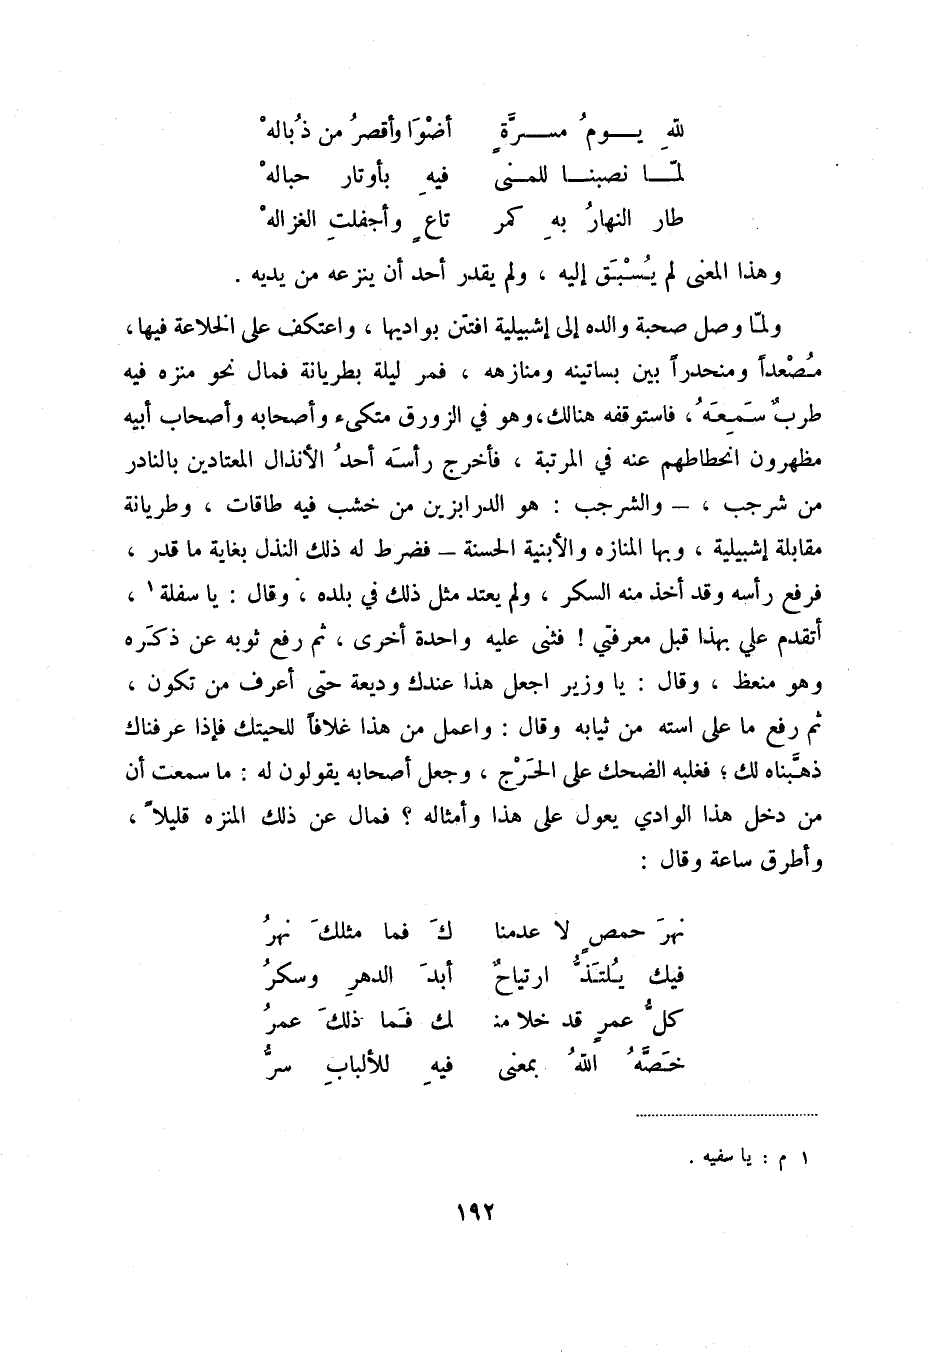 لله يـــوم مســـرَّةٍ أضْوَا وأقصرُ من ذُبالهْ
لمّــا نصبنــا للمــنى فيهِ بأوتار حبالهْ
طار النهارُ بهِ كمر تاعٍ وأجفلتِ الغزالهْ
وهذا المعنى لم يُسْبَق إليه ، ولم يقدر أحد أن ينزعه من يديه .
ولمّا وصل صحبة والده إلى إشبيلية افتتن بواديها ، واعتكف على الخلاعة فيها،
مُصْعداً ومنحدراً بين بساتينه ومنازهه ، فمر ليلة بطريانة فمال نحو منزه فيه
طربٌ سَمِعَهُ، فاستوقفه هنالك،وهو في الزورق متكىء وأصحابه وأصحاب أبيه
مظهرون انحطاطهم عنه في المرتبة ، فأخرج رأسَه أحدُ الأنذال المعتادين بالنادر
من شرجب ، – والشرجب : هو الدرابزين من خشب فيه طاقات ، وطريانة
مقابلة إشبيلية ، وبها المنازه والأبنية الحسنة – فضرط له ذلك النذل بغاية ما قدر ،
فرفع رأسه وقد أخذ منه السكر ، ولم يعتد مثل ذلك في بلده ، وقال : يا سفلة ١ ،
أتقدم علي بهذا قبل معرفتي ! فثنى عليه واحدة أخرى ، ثم رفع ثوبه عن ذكَره
وهو منعظ ، وقال : يا وزير اجعل هذا عندك وديعة حتى أعرف من تكون ،
ثم رفع ما على استه من ثيابه وقال : واعمل من هذا غلافاً للحيتك فإذا عرفناك
ذهَّبناه لك ؛ فغلبه الضحك على الحَرْج ، وجعل أصحابه يقولون له : ما سمعت أن
من دخل هذا الوادي يعول على هذا وأمثاله ؟ فمال عن ذلك المنزه قليلاً ،
وأطرق ساعة وقال :
نهرَ حمصٍ لا عدمنا كَ فما مثلكَ نهرُ
فيك يُلتَذُّ ارتياحٌ أبدَ الدهرِ وسكرُ
كلُّ عمرٍ قد خلا منـ ك فَما ذلكَ عمرُ
خصَّهُ اللهُ بمعنى فيهِ للألبابِ سرُّ
١ م : يا سفيه .
١٩٢